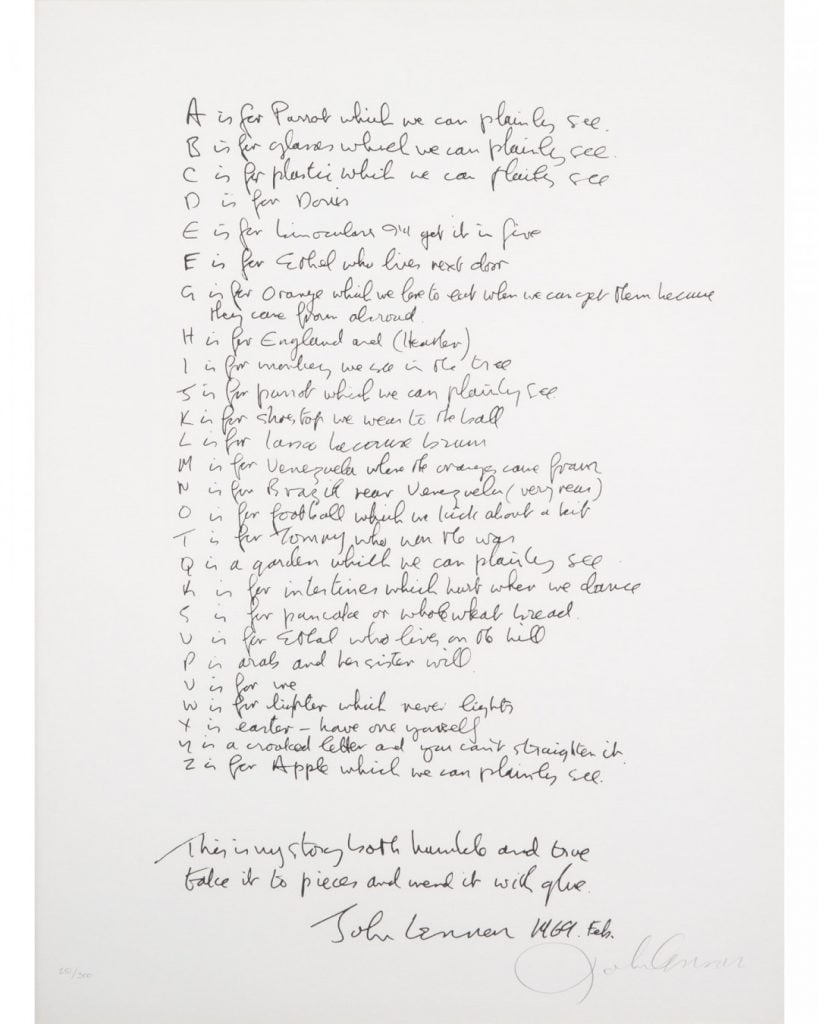 A is for Parrot which we can plainly see.
B is for glasses which we can plainly see.
C is for plastic which we can plainly see
D is for Doris
E is for binoculars I'll get it in five
F is for Ethel who lives next door
G is for Orange which we love to eat when we can get them because
they come from abroad.
H is for England and (Heather)
I is for monkey we see in the tree
J is for parrot which we can plainly see
K is for shoetop we wear to the ball
L is for lasso because brum
M is for Venezuela where the oranges come from
N is for Brazil near Venezuela (very near)
O is for football which we kick about a bit
T is for Tommy who won the war
Q is a garden which we can plainly see
R is for intestines which hurt when we dance
S is for pancake or wholewheat bread.
U is for Ethel who lives on the hill
P is arab and her sister will
V is for me
W is for lighter which never lights
X is easter – have one yourself
Y is a crooked letter and you can't straighten it.
Z is for Apple which we can plainly see.
This is my story both humble and true
take it to pieces and mend it with glue.
John Lennon 1969. Feb.
John Lennon
/300